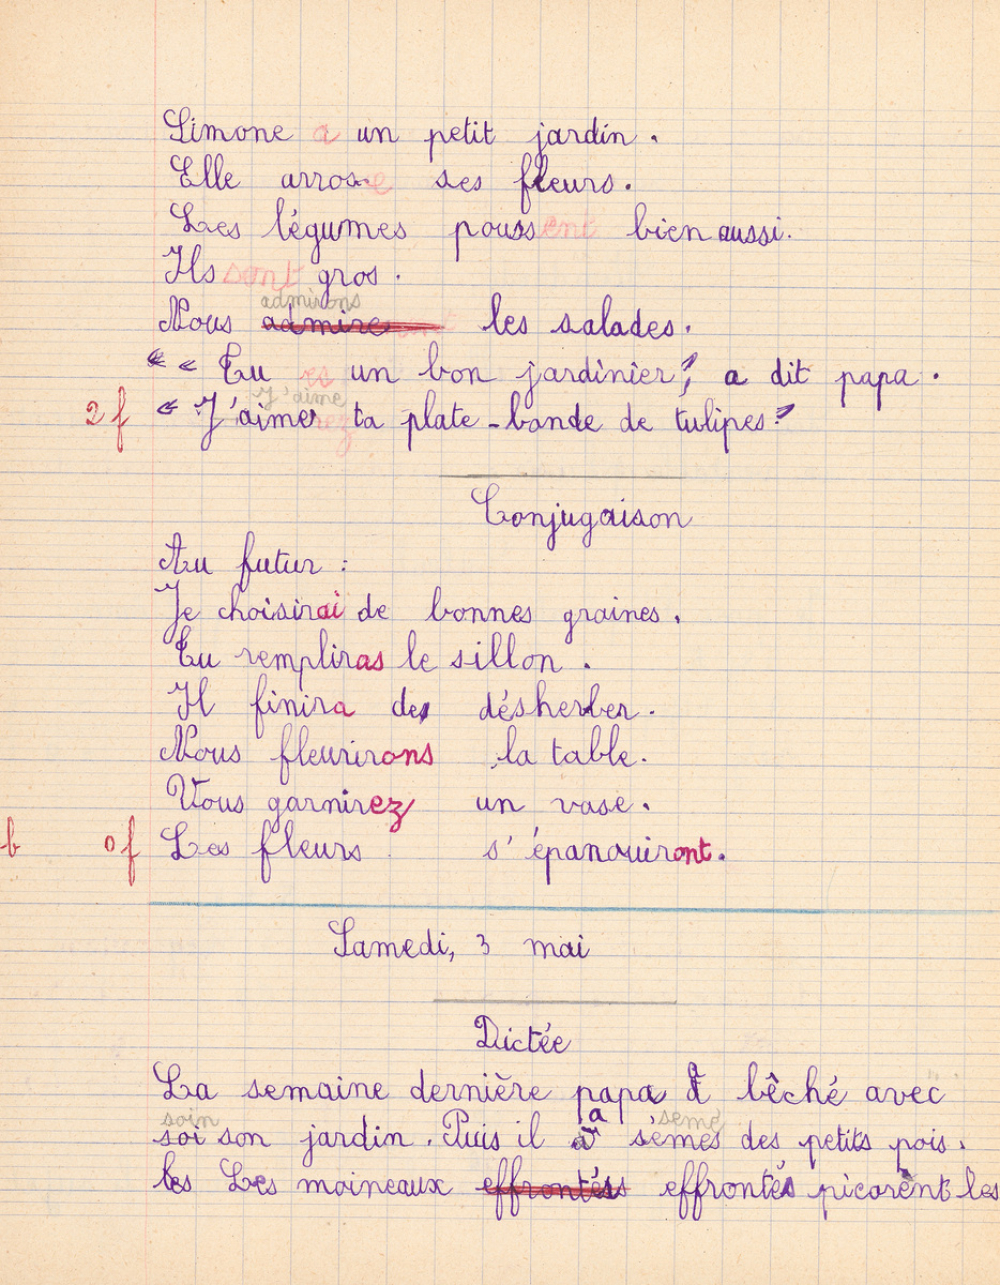 Simone a un petit jardin.
Elle arrose ses fleurs.
Les légumes poussent bien aussi.
Ils sont gros.
admirons
Nous admire les salades.
" " Tu es un bon jardinier", a dit papa.
J'aime
2f " J'aimer ta plate-bande de tulipes"
Conjugaison
Au futur :
Je choisirai de bonnes graines.
Tu rempliras le sillon.
Il finira des désherber.
Nous fleurirons la table.
Vous garnirez un vase.
b 0f Les fleurs s'épanouiront.
Samedi, 3 mai
Dictée
La semaine dernière papa a bêché avec
soin a semé
soi son jardin. Puis il a sémes des petits pois.
les Les moineaux effrontés effrontés picorènt les